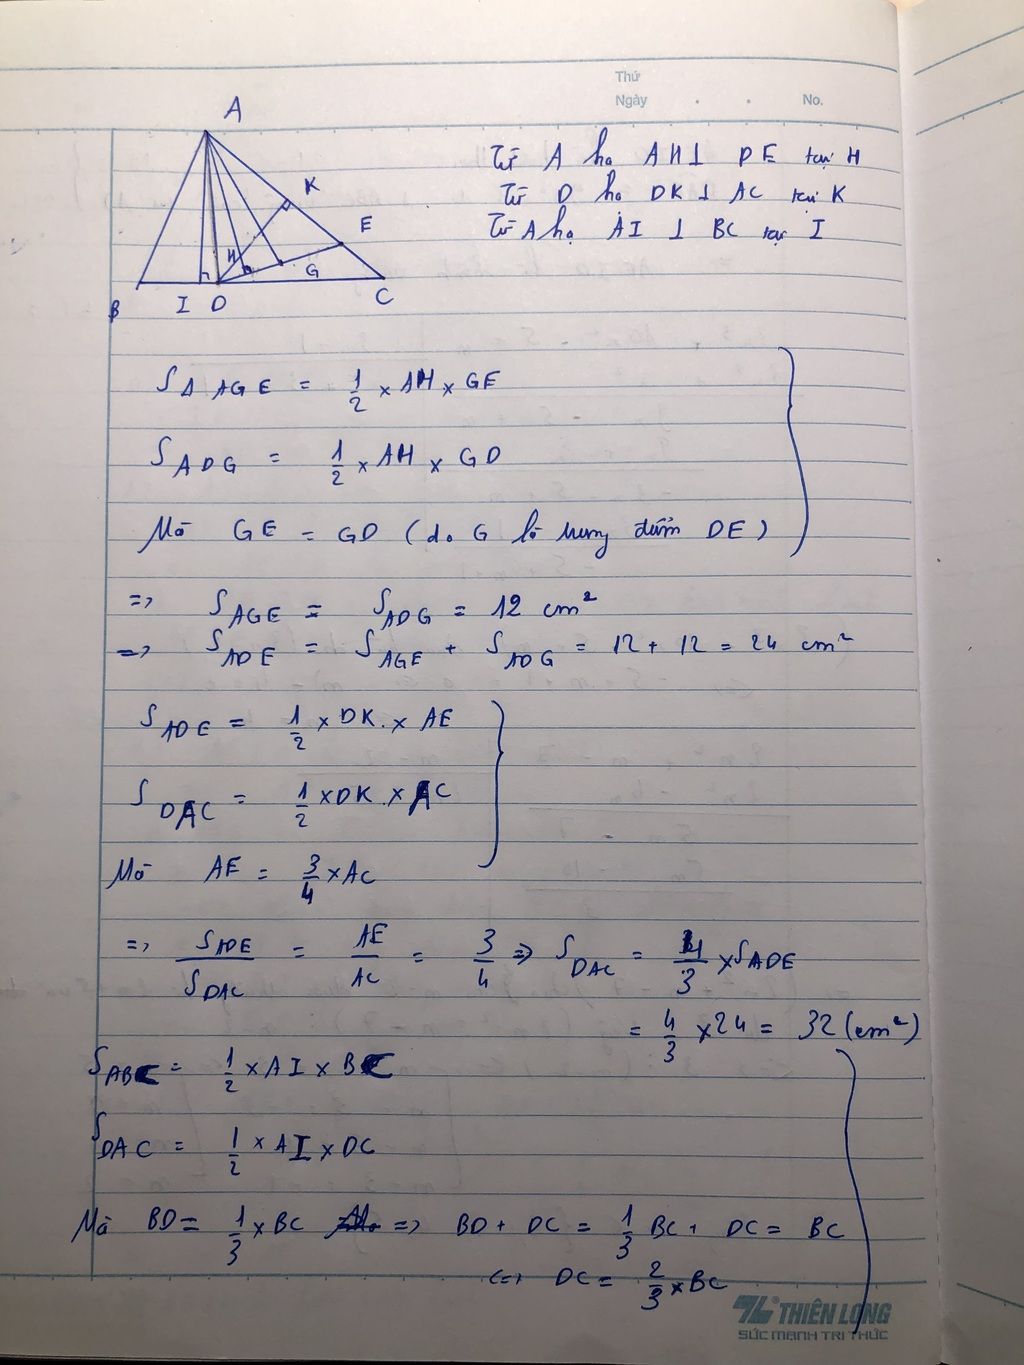 Thứ
Ngày . . No.
A
K
E
H
G
B I D C
Từ A hạ AH ⊥ DE tại H
Từ D hạ DK ⊥ AC tại K
Từ A hạ AI ⊥ BC tại I
SΔAGE = 1/2 × AH × GE
SADG = 1/2 × AH × GD
Mà GE = GD (do G là trung điểm DE)
=> SAGE = SADG = 12 cm²
=> SADE = SAGE + SADG = 12 + 12 = 24 cm²
SADE = 1/2 × DK × AE
SDAC = 1/2 × DK × AC
Mà AE = 3/4 × AC
=> SADE/SDAC = AE/AC = 3/4 => SDAC = 4/3 × SADE
= 4/3 × 24 = 32 (cm²)
SABC = 1/2 × AI × BC
SDAC = 1/2 × AI × DC
Mà BD = 1/3 × BC => BD + DC = 1/3 BC + DC = BC
<=> DC = 2/3 × BC
THIÊN LONG
SỨC MẠNH TRI THỨC